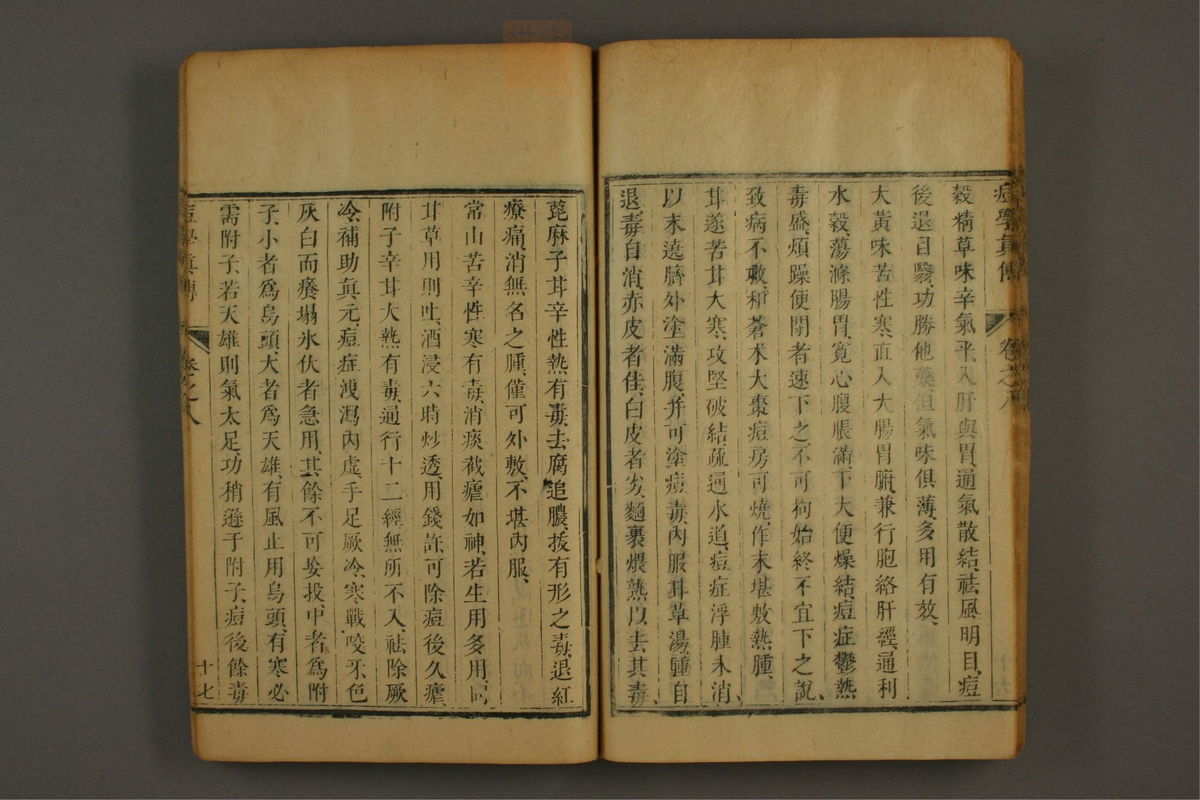 痘學真傳 卷之八
穀精草味辛氣平入肝與胃通氣散結祛風明目痘
後退目翳功勝他藥但氣味俱薄多用有效
大黃味苦性寒直入大腸胃脈兼行胞絡肝經通利
水穀蕩滌腸胃寬心腹脹滿下大便燥結痘症鬱熱
毒盛煩躁便閉者速下之不可拘始終不宜下之說
致病不救和蒼术大棗痘房可燒作末堪敷熱腫
甘遂苦甘大寒攻堅破結疏通水道痘症浮腫未消
以末遶臍外塗滿腹并可塗痘毒內服甘草湯腫自
退毒自消赤皮者佳白皮者劣麵裹煨熟以去其毒
蓖麻子甘辛性熱有毒去腐追膿拔有形之毒退紅
療痛消無名之腫僅可外敷不堪內服
常山苦辛性寒有毒消痰截瘧如神若生用多用同
甘草用則吐酒浸六時炒透用錢許可除痘後久瘧
附子辛甘大熱有毒通行十二經無所不入祛除厥
冷補助真元痘症洩瀉內虛手足厥冷寒戰咬牙色
灰白而癢塌氷伏者急用其餘不可妄投中者為附
子小者為烏頭大者為天雄有風止用烏頭有寒必
需附子若天雄則氣太足功稍遜于附子痘後餘毒
痘學真傳 卷之八 十七